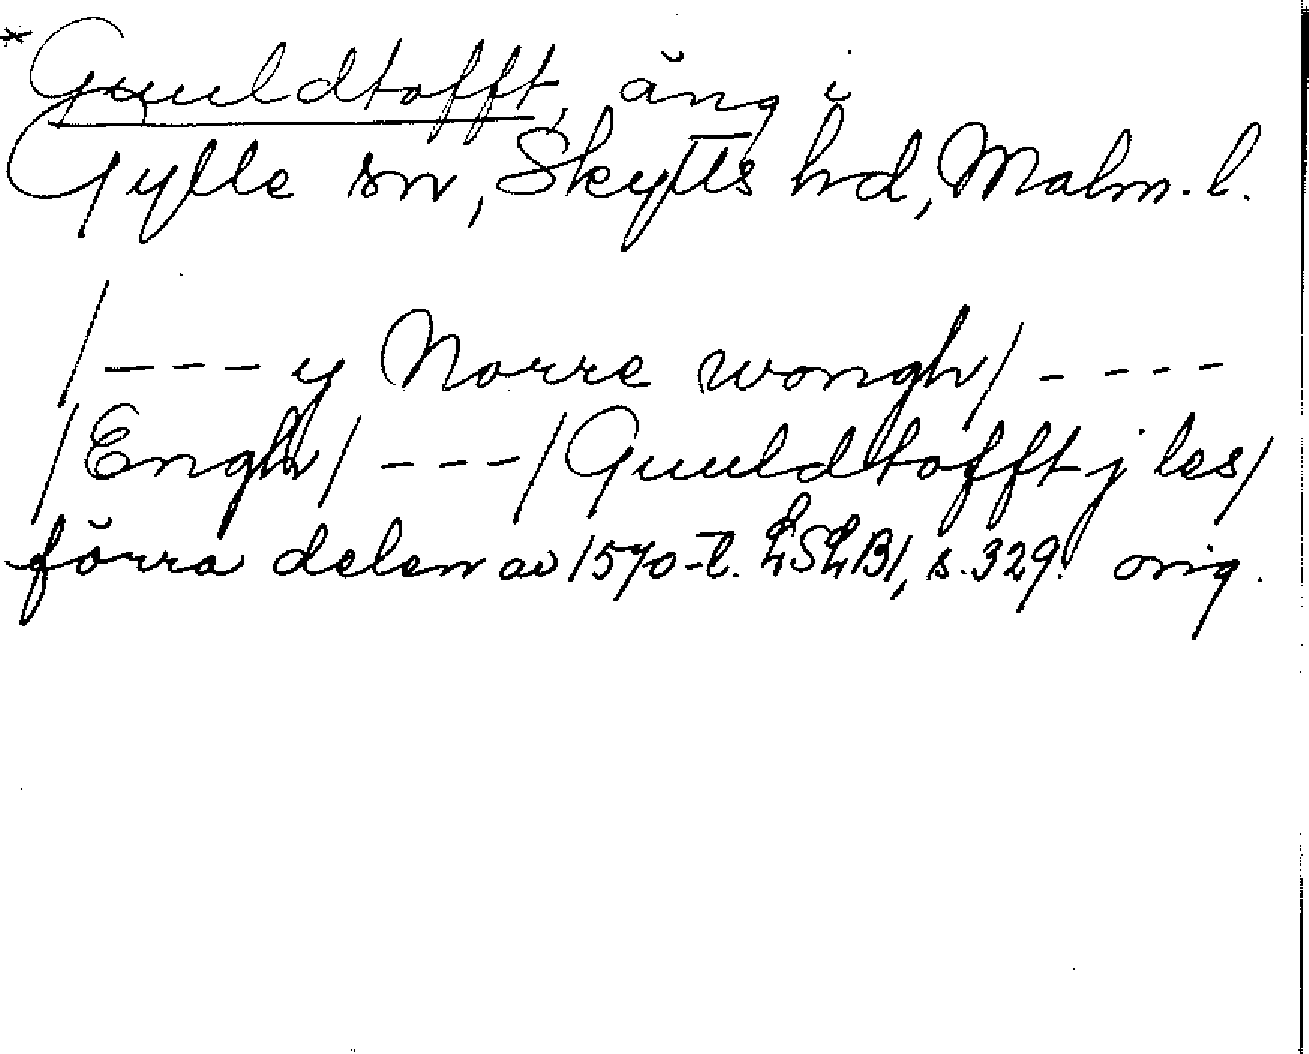 *Guuldtofft, äng i
Gylle sn, Skytts hd, Malm. l.
/---y Norre wongh/----
/Engh/---/Guuldtofft j les/
förra delen av 1570-t. LSLB1, s. 329. orig.